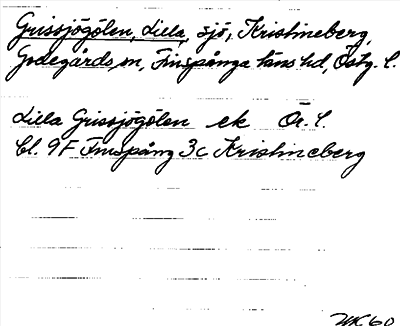 Grissjögölen, Lilla, sjö, Kristineberg,
Godegårds sn, Finspånga läns hd, Östg. l.
Lilla Grissjögölen ek Ör. l.
bl. 9F Finspång 3c Kristineberg